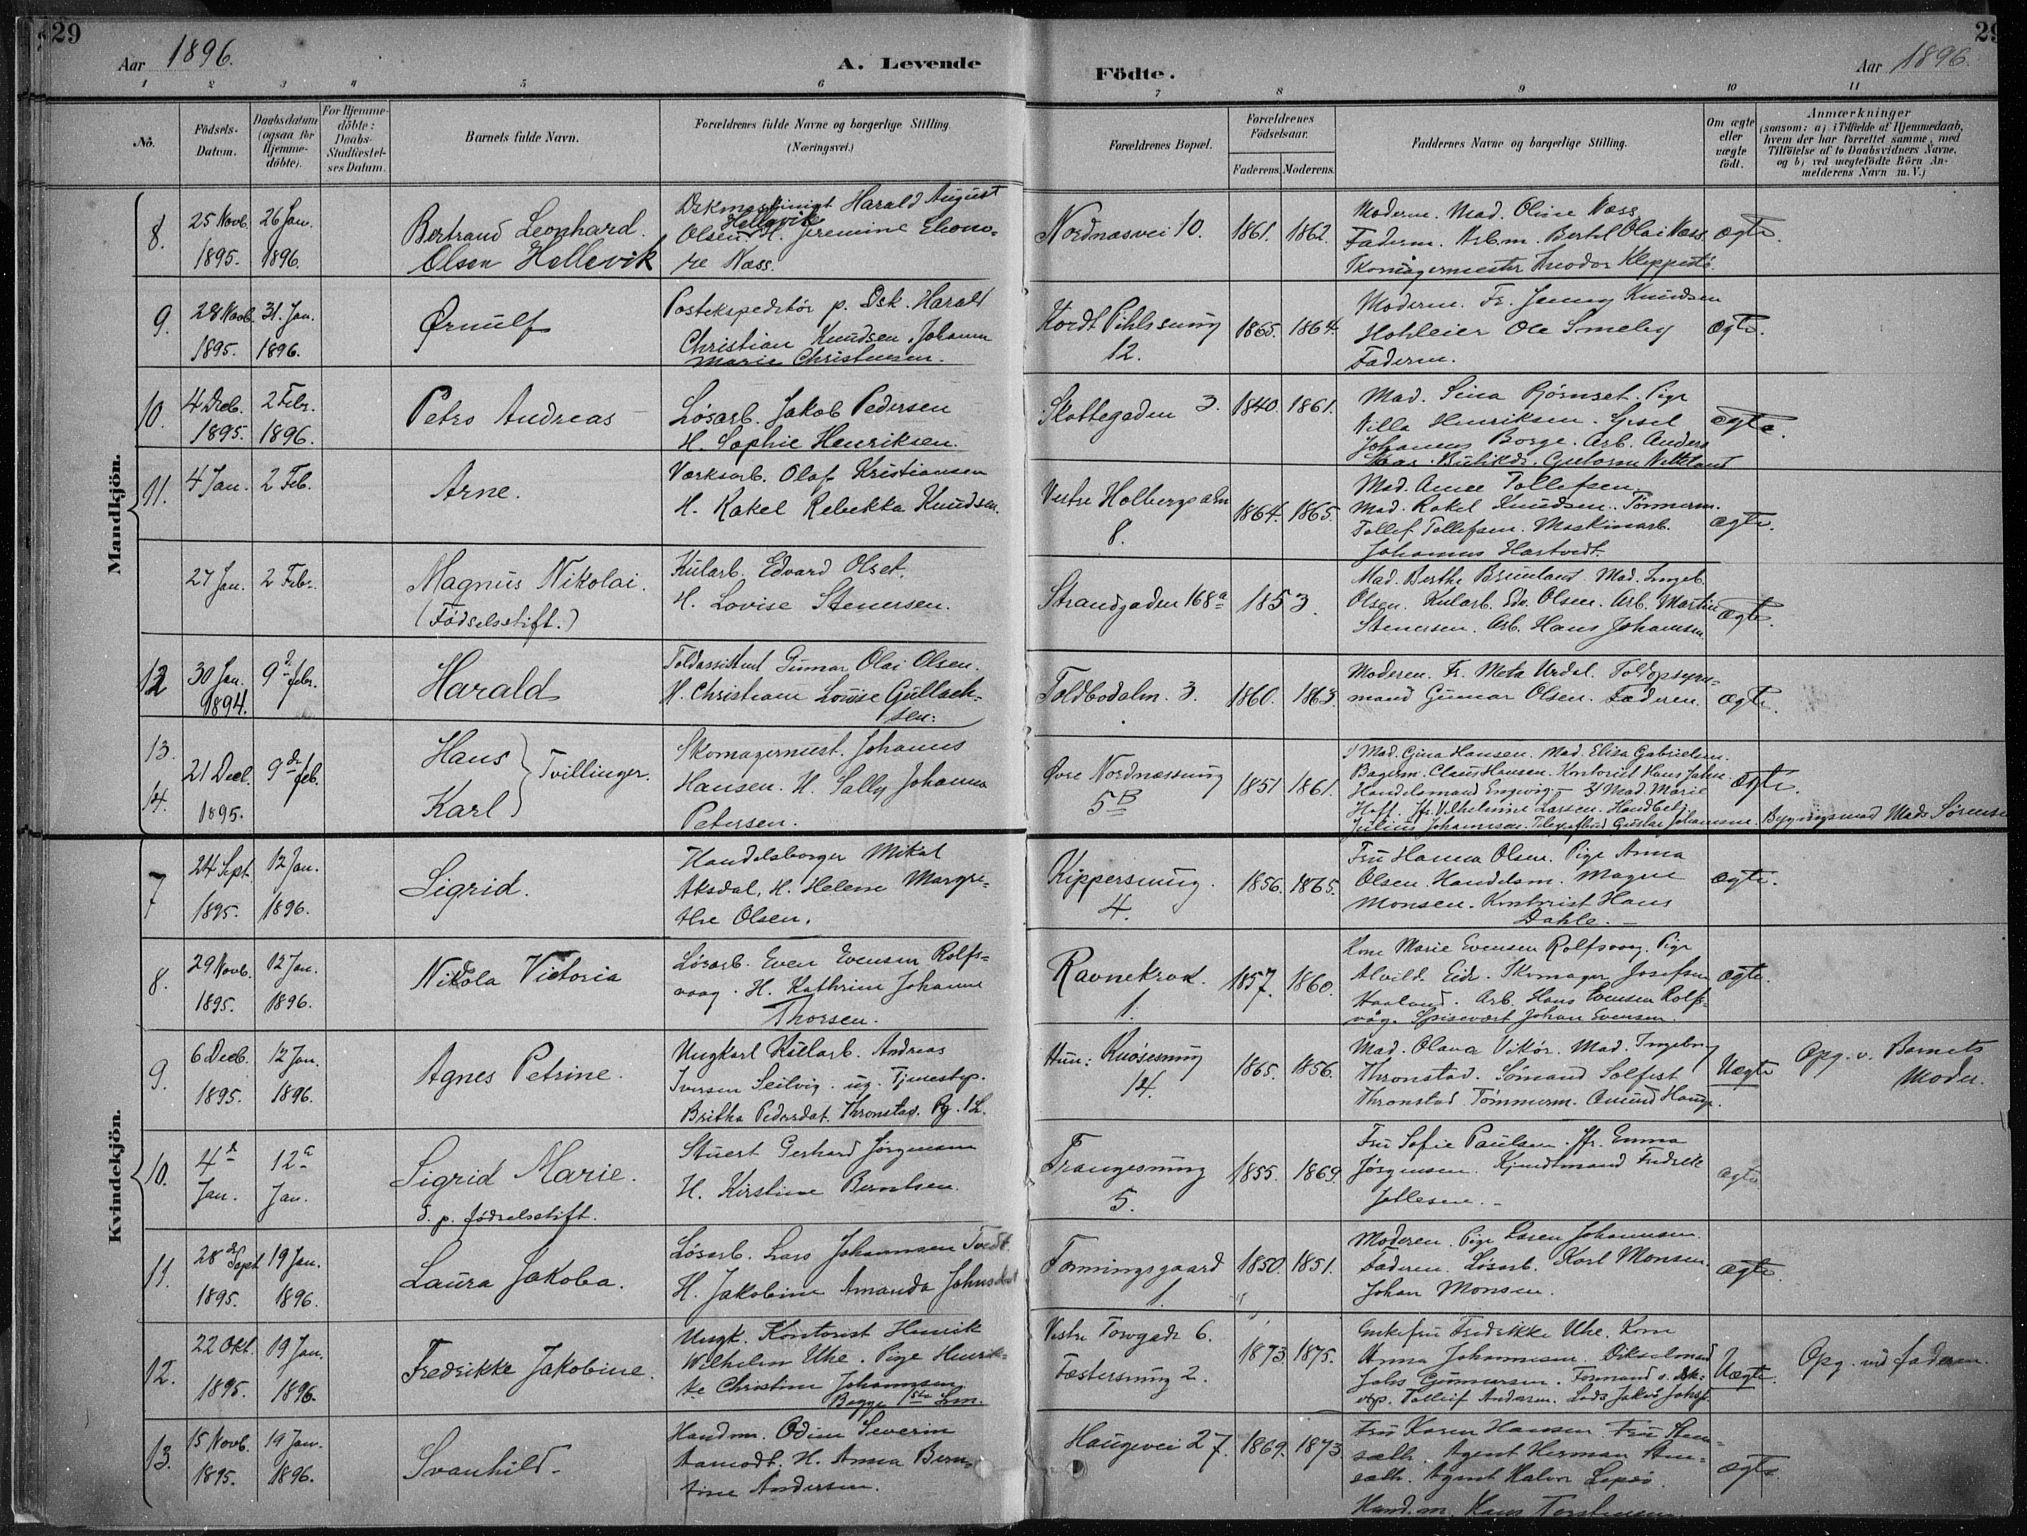 29
29
Aar 1896.
A. Levende
Födte.
Aar 1896.
1 2 3 4 5 6 7 8 9 10 11
No.
Födsels-
Datum.
Daabsdatum
(ogsaa for
Hjemme-
döbte).
For Hjemme-
döbte:
Daabs-
Stadfæstel-
ses Datum.
Barnets fulde Navn.
Forældrenes fulde Navne og borgerlige Stilling.
(Næringsvei.)
Forældrenes Bopæl.
Forældrenes
Födselsaar.
Faderens. Moderens.
Faddernes Navne og borgerlige Stilling.
Om ægte
eller
uægte
födt.
Anmærkninger
(saasom: a) i Tilfælde af Hjemmedaab,
hvem der har forrettet samme, med
Tilföielse af to Daabsvidners Navne,
og b) ved uægtefödte Börn An-
melderens Navn m. V.)
Mandkjön.
8.
25 Novb.
1895.
26 Jan.
1896.
Bertrand Leonhard.
Olsen Hellevik
Harald August
Hellevik
Olsen H. Jeremine
Næss.
Nordnæsvei 10.
1861. 1862.
Moderen. Mad. Oline Næss
Faderen. Arb.m. Bertel Olai Næss
Skomagermester Theodor Kleppestø.
ægte.
9.
28 Novb.
1895.
31. Jan.
1896.
Ørnulf
Postekspeditør p. Dsk. Harald
Christian Knudsen. Johanne
Marie Christensen.
Kordt Pihlssmug
12.
1865. 1864.
Moderen. Fr. Jenny Knudsen
Ole Smeby
Faderen.
ægte.
10.
4 Decb.
1895.
2 Febr.
1896.
Petro Andreas
Løsarb. Jakob Pedersen
H. Sophie Henriksen.
Skottegaden 3.
1840. 1861.
Mad. Sina Bjørnset. Pige
Villa Henriksen.
Johannes Borge. Arb. Anders
ægte.
11.
4 Jan.
2 Feb.
Arne.
Værksarb. Olaf Kristiansen
H. Rakel Rebekka Knudsen.
Vestre Holbergsalm
8.
1864. 1865.
Mad. Tollefsen.
Mad. Rakel Knudsen. Tømmerm.
Tollef Tollefsen. Maskinarb.
Johannes Hartvedt.
ægte.
27 Jan.
2 Febr.
Magnus Nikolai.
(Födselsstift.)
Kularb. Edvard Olset.
H. Lovise Stenersen.
Strandgaden 168a
1853.
Mad. Berthe Mad. Ingeb.
Olsen. Kularb. Edv. Olsen. Arb. Martin
Stenersen. Arb. Hans Johansen
ægte.
12
30 Jan.
1894.
9de febr.
Harald
Toldassistent Gunnar Olai Olsen.
H. Christiane Louise Gullach-
sen.
Toldbodalm. 3.
1860. 1863.
Moderen. Fr. Meta Urdal. Toldopsyns-
mand Gunnar Olsen. Faderen.
ægte.
13.
14.
21 Decb.
1895.
9de feb.
Hans
Karl
Tvillinger.
Skomagermest. Johannes
Hansen. H. Sally Johanna
Petersen.
Øvre Nordnæssmug
5B
1851 1861.
1/ Mad. Gina Hansen. Mad. Elisa Gabrielsen.
Bagerm. Claus Hansen. Kontorist Hans Jahn
Handelsmand Engvig. 2/ Mad. Marie
Hoff. Jfr. Vilhelmine Larsen. Handelsbetj.
Julius Johannesen. Telegrafbud Gustav Johannesen. Bygningsmand Mads Sørensen
ægte.
Kvindekjön.
7
24 Sept.
1895.
12 Jan.
1896.
Sigrid.
Handelsborger Mikal
Aksdal. H. Helene Margre-
the Olsen.
Kippersmug.
4.
1856. 1865.
Fru Hanna Olsen. Pige Anna
Olsen. Handelsm. Magne
Monsen. Kontorist Hans
Dahle.
ægte.
8.
29 Novb.
1895.
12 Jan.
1896.
Nikola Victoria
Løsarb. Even Evensen Rolfs-
vaag. H. Kathrine Johanne
Thorsen.
Ravnekrok.
1.
1857. 1860.
Kone Marie Evensen Rolfsvaag. Pige
Alvild Eide. Skomager Josefsen
Haaland. Arb. Hans Evensen Rolfs-
våg. Spisevært Johan Evensen.
ægte.
9.
6 Decb.
1895.
12 Jan.
1896.
Agnes Petrine.
Ungkarl Kularb. Andreas
Iversen Seilvig. ug. Tjenestep.
Britha Pedersdat. Thronstad. Bg. 1 L.
Hun: Knøsesmug
14.
1865. 1856.
Mad. Olava Vikør. Mad. Ingeborg
Thronstad. Sømand Solfest
Thronstad Tømmerm. Amund Haug.
Uægte
Opg. v. Barnets
Moder.
10.
4de
Jan.
12te
Jan.
Sigrid Marie.
d. p. fødselsstift.
Stuert Gerhard Jørgensen
H. Kirstine Berntsen.
Trangesmug
5.
1855. 1869.
Fru Sofie Paulsen. Jfr. Emma
Jørgensen. Kjendtmand Fredrik
Jallesen.
ægte
11.
28de Sept
1895.
19 Jan.
1896.
Laura Jakoba.
Løsarb. Lars Johannsen Tvedt.
H. Jakobine Amanda
Tømmingsgaard
1.
1850. 1851.
Moderen. Pige Johannsen.
Faderen. Løsarb. Karl Monsen.
Johan Monsen.
ægte.
12.
22 Okt.
1895.
19 Jan.
1896.
Fredrikke Jakobine.
Ungk. Kontorist Henrik
Wilhelm Uhe. Pige Henrik-
ke Christine Johannsen
Begge 1ste Lm.
Vestre Torvgade 6.
Fæstersmug 2.
1873. 1875.
Enkefru Fredrikke Uhe. Kone
Anna Johannesen.
Johs Gunnarsen. Formand
Uægte.
Opg. ved faderen.
13.
15 Novb.
1895.
19 Jan.
1896.
Svanhild.
Handm. Odin Severin
Aamodt. H. Anna Bern-
tine Andersen.
Haugevei 27.
1869. 1873
Fru Karen Hansen.
Agent Herman
Agent Halvor Lepsø.
Hand.m. Hans Torstensen.
ægte.